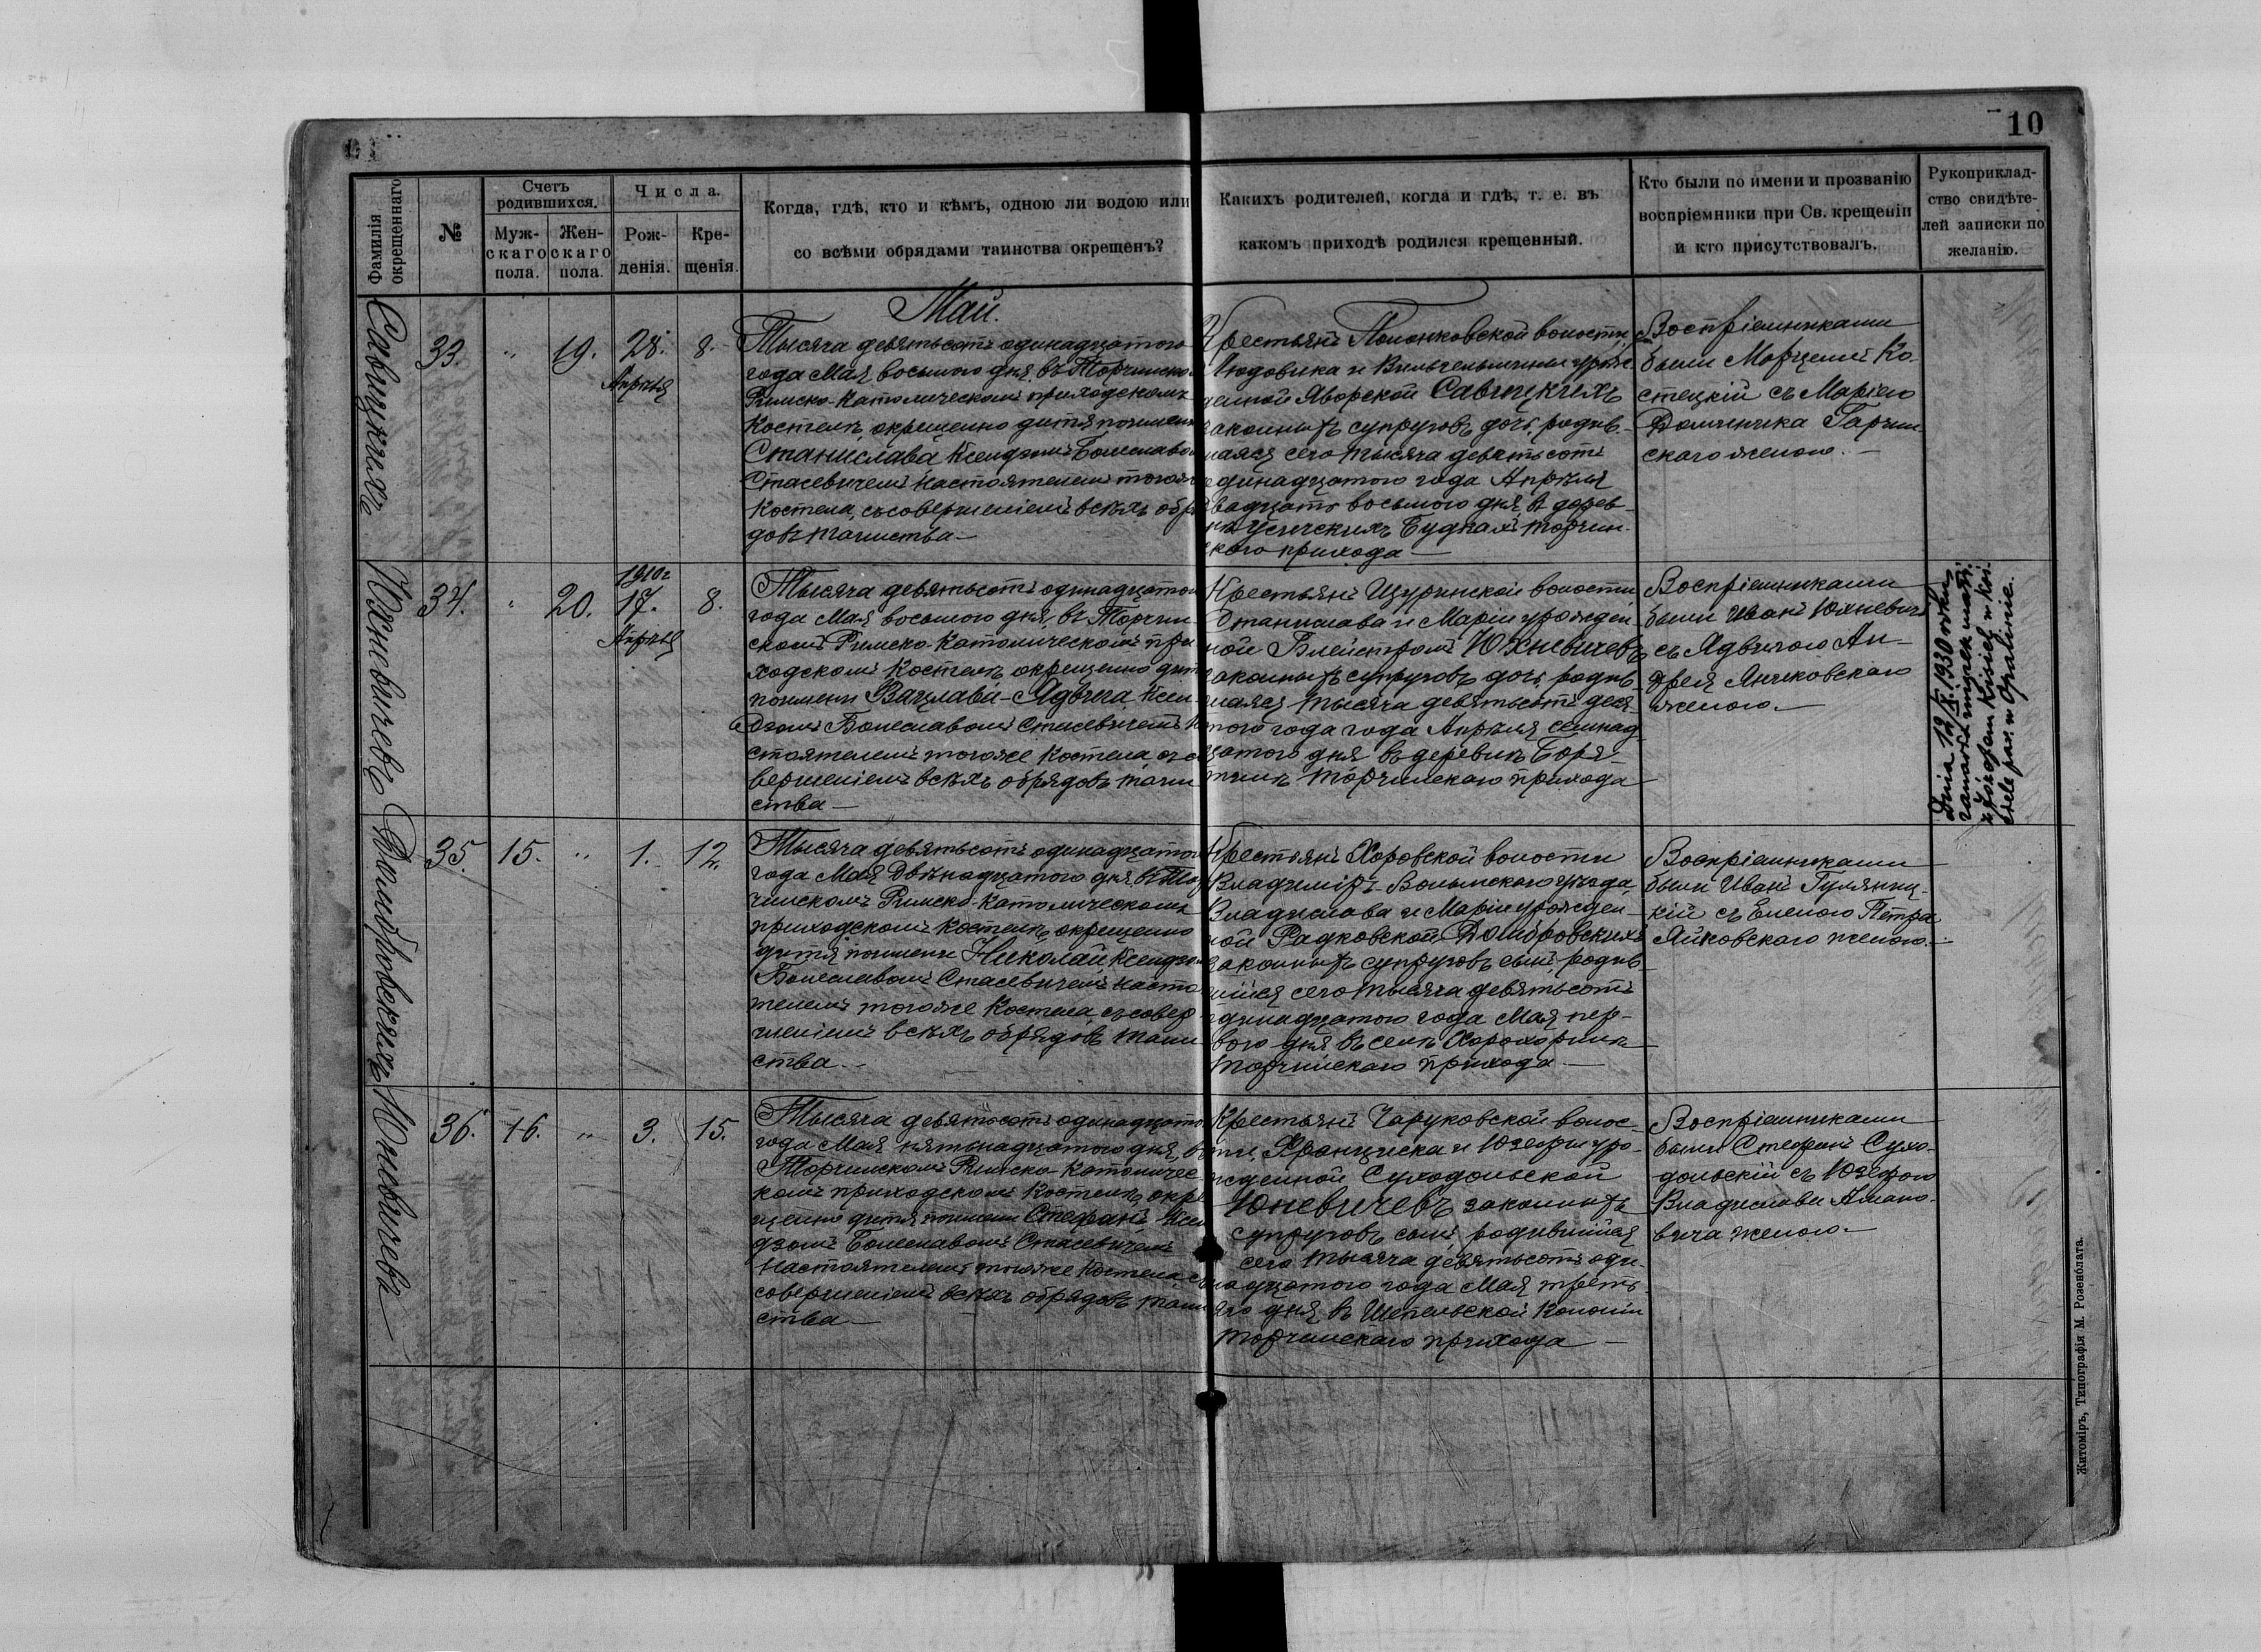 10
Фамилія окрещеннаго
№
Счетъ родившихся.
Муж-
скаго
пола.
Жен-
скаго
пола.
Числа.
Рож-
денія.
Кре-
щенія.
Когда, гдѣ, кто и кѣмъ, одною ли водою или
со всѣми обрядами таинства окрещенъ?
Какихъ родителей, когда и гдѣ, т. е. въ
какомъ приходѣ родился крещенный.
Кто были по имени и прозванію
воспріемники при Св. крещеніи
и кто присутствовалъ.
Рукоприклад-
ство свидѣте-
лей записки по
желанію.
Май.
Савицкихъ
33. " 19. 28. 8.
Апрѣля
Тысяча девятьсотъ одинадцатого
года Мая восьмого дня, въ Торчинском
Римско-Католическомъ приходскомъ
Костелѣ, окрещено дитя по имени
Станислава Ксендзомъ Болеславом
Стасевичемъ Настоятелемъ тогоже
Костела, съ совершеніемъ всѣхъ обря
довъ таинства
Крестьянъ Полонковской волости,
Людовика и Вильгельмины урож-
денной Яворской Савицкихъ
законныхъ супруговъ дочь, родив-
шаяся сего тысяча девятьсотъ
одинадцатого года Апрѣля
двадцать восьмого дня, въ дерев-
нѣ Усичскихъ Будкахъ Торчин-
ского прихода
Воспріемниками
были Марцелій Ко-
стецкій съ Маріею
Доминика Гарчин-
скаго женою.
Юхневичевъ
34. " 20. 17. 8.
1910 г
Апрѣля
Тысяча девятьсотъ одинадцатого
года Мая восьмого дня, въ Торчин
скомъ Римско-Католическомъ при
ходскомъ Костелѣ окрещено дитя
по имени Вацлава-Ядвига, Ксен
дзомъ Болеславомъ Стасевичемъ На
стоятелемъ тогоже Костела, съ со
вершеніемъ всѣхъ обрядовъ таин
ства
Крестьянъ Щуринской волости
Станислава и Маріи урожден-
ной Блейстромъ Юхневичевъ
законныхъ супруговъ дочь, родив-
шаяся тысяча девятьсотъ деся-
того года года Апрѣля семнад
цатого дня въ деревнѣ Боря-
тинѣ Торчинскаго прихода
Воспріемниками
были Иванъ Юхневичъ
съ Ядвигою Ан-
дрея Янчковскаго
женою.
Dnia 12/X 1930 roku
zawarł związek małż.
z Józefem Kisiel w koś-
ciele par. w Opalinie.
Домбровскихъ
35. 15. " 1. 12.
Тысяча девятьсотъ одинадцатого
года Мая двѣнадцатого дня, въ Тор
чинскомъ Римско-Католическомъ
приходскомъ Костелѣ, окрещено
дитя по имени Николай, Ксендзомъ
Болеславомъ Стасевичемъ Насто
телемъ тогоже Костела, съ совер
шеніемъ всѣхъ обрядовъ таин
ства
Крестьянъ Хоровской волости
Владиміръ-Волынскаго уѣзда,
Владислава и Маріи урожден-
ной Радковской, Домбровскихъ
законныхъ супруговъ сынъ, родив-
шійся сего тысяча девятьсотъ
одинадцатого года Мая пер-
вого дня въ селѣ Хорохоринѣ
Торчинскаго прихода
Воспріемниками
были Иванъ Гуляниц-
кій съ Еленою Петра
Янковскаго женою.
Юневичева
36. 16. " 3. 15.
Тысяча девятьсотъ одинадцатого
года Мая пятьнадцатого дня, въ
Торчинскомъ Римско-Католичес-
комъ приходскомъ Костелѣ, окре
щено дитя по имени Стефанъ Ксен
дзомъ Болеславомъ Стасевичемъ
Настоятелемъ тогоже Костела, съ
совершеніемъ всѣхъ обрядовъ таин
ства
Крестьянъ Чаруковской волос-
ти, Франциска и Юзефы уро-
жденной Суходольской
Юневичевъ законныхъ
супруговъ сынъ, родившійся
сего тысяча девятьсотъ оди-
надцатого года Мая треть-
яго дня, въ Шепельской Колоніи
Торчинскаго прихода
Воспріемниками
были Стефанъ Сухо-
дольскій съ Юзефою
Владислава
женою.
Житоміръ, Типографія М. Розенблата.